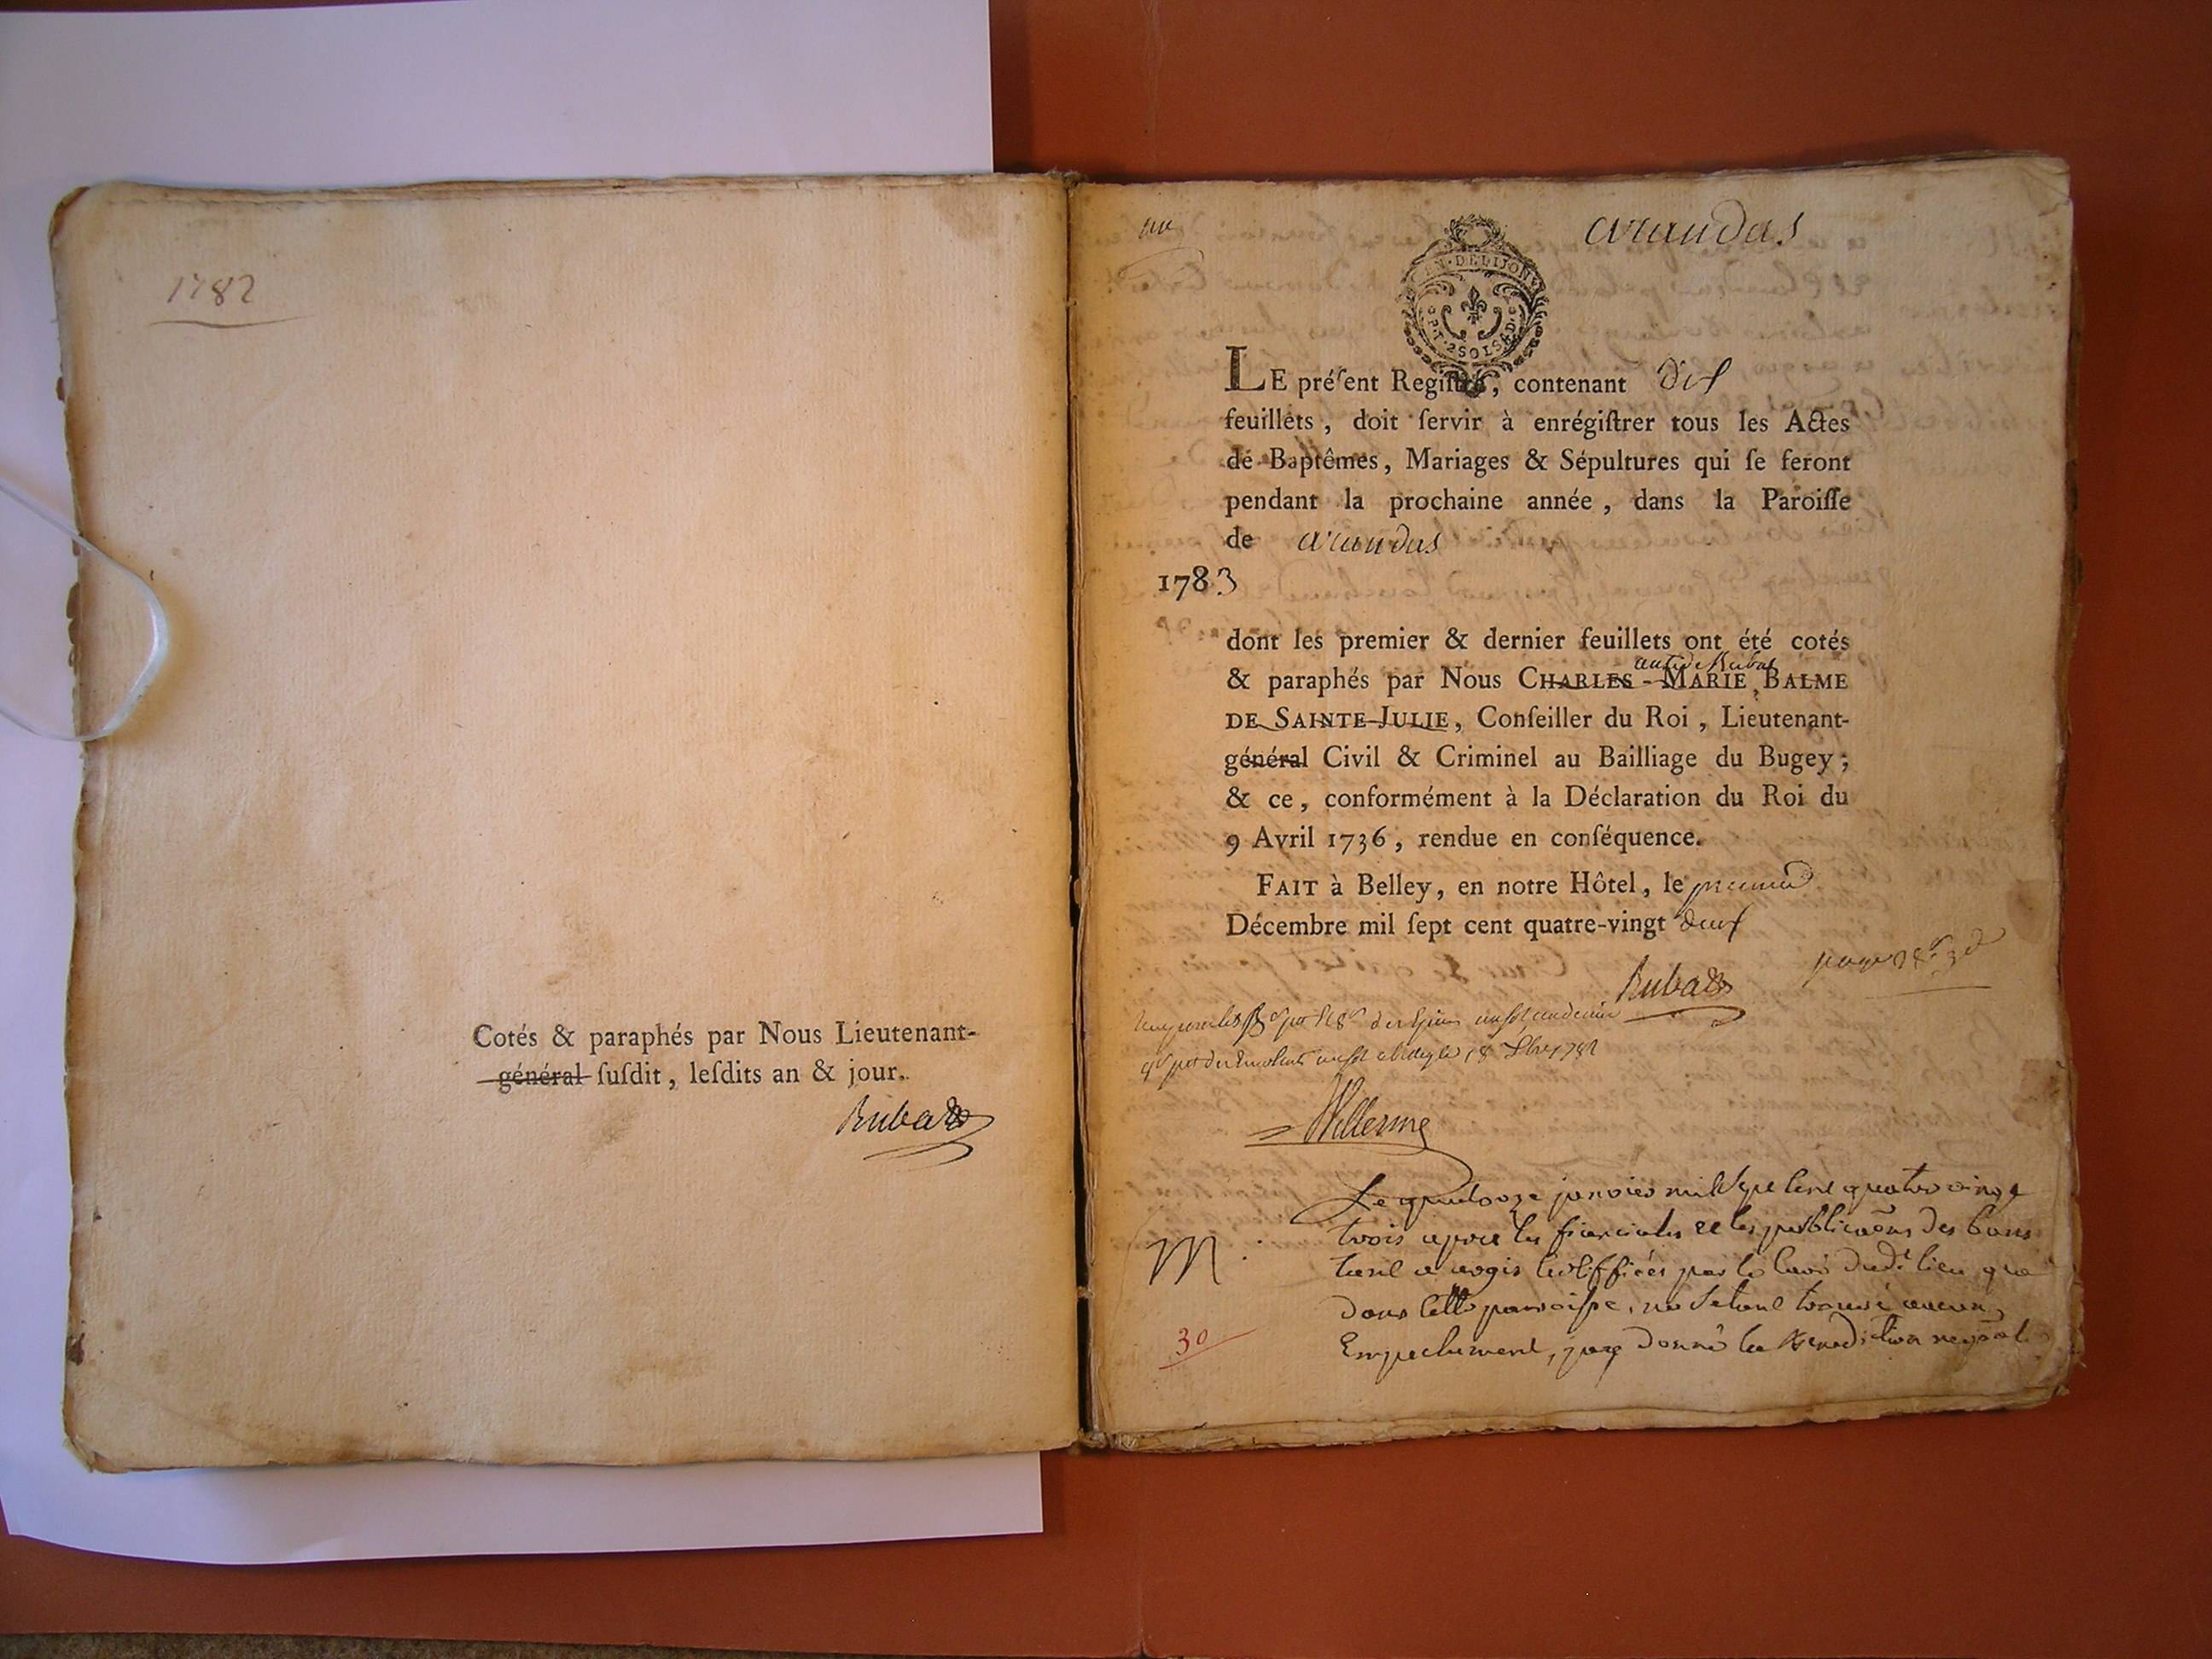 1782
Cotés & paraphés par Nous Lieutenant-
général ſuſdit, leſdits an & jour.
Rubat
arandas
GEN · DE DIJON
P.T. 2 SOLS 8 D.
LE préſent Regiſtre, contenant dix
feuillets, doit ſervir à enrégiſtrer tous les Actes
de Baptêmes, Mariages & Sépultures qui ſe feront
pendant la prochaine année, dans la Paroiſſe
de arandas
1783
dont les premier & dernier feuillets ont été cotés
Rubat
& paraphés par Nous CHARLES-MARIE BALME
DE SAINTE-JULIE, Conſeiller du Roi, Lieutenant-
général Civil & Criminel au Bailliage du Bugey;
& ce, conformément à la Déclaration du Roi du
9 Avril 1736, rendue en conſéquence.
FAIT à Belley, en notre Hôtel, le premier
Décembre mil ſept cent quatre-vingt deux
Rubat
1782
Willerme
Le quatorze janvier mil sept cent quatre vingt
trois apres les fiancailes et les publicaõns des bans
tant a certiffiées par le Curé dudt lieu que
M.
dans cette parroisse, ne setant trouvé aucun
Empechement, jay donné la Benediction
30